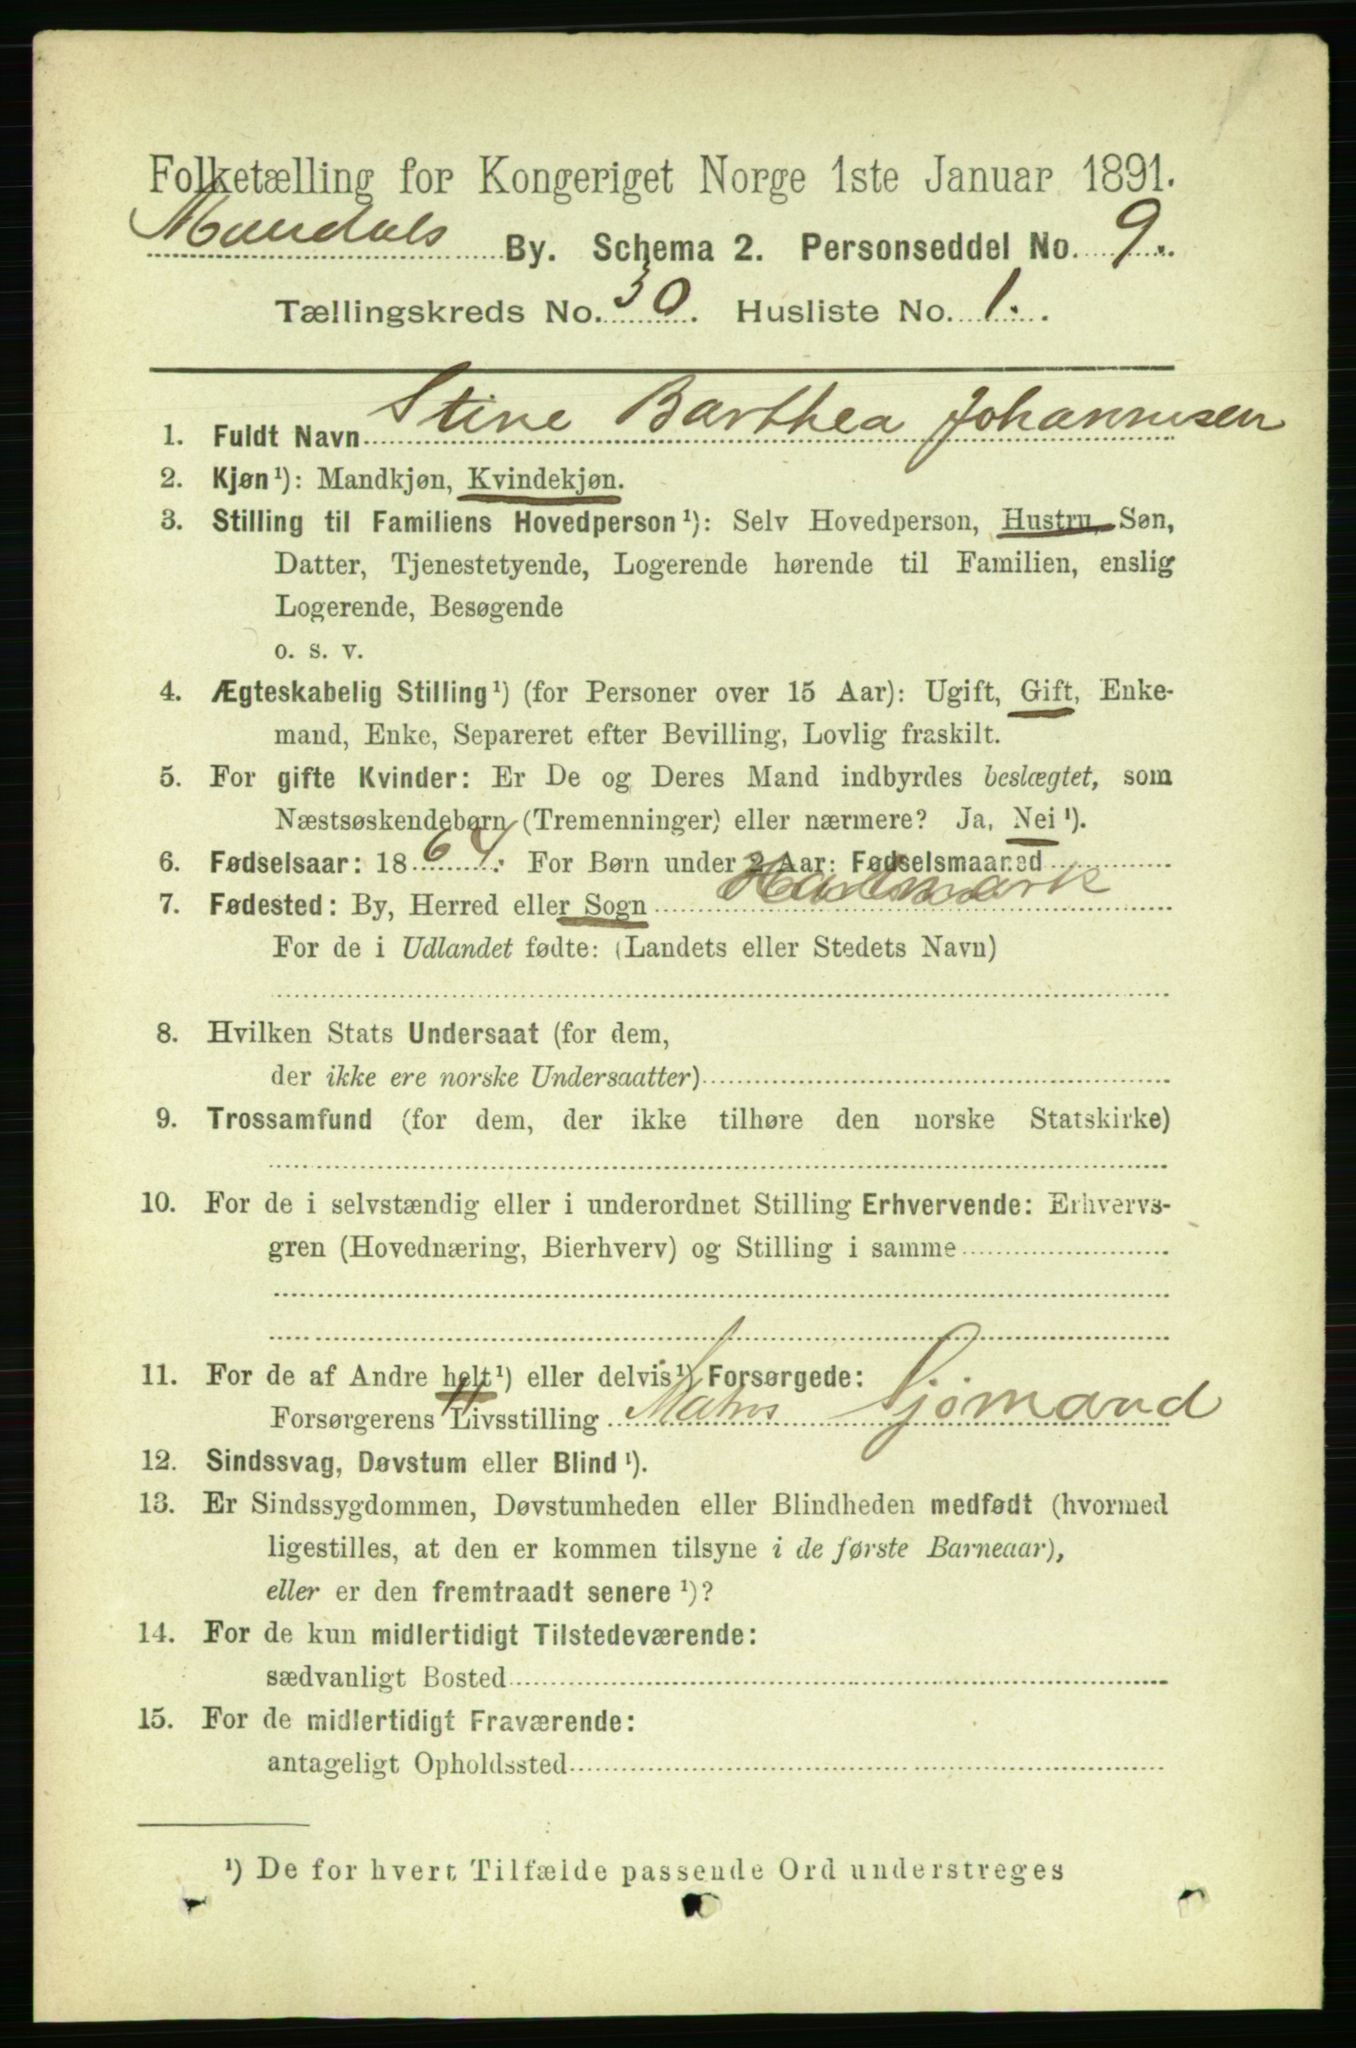 Folketælling for Kongeriget Norge 1ste Januar 1891.
Mandals By. Schema 2. Personseddel No. 9.
Tællingskreds No. 30. Husliste No. 1.
1. Fuldt Navn Stine Barthea Johannesen
2. Kjøn¹): Mandkjøn, Kvindekjøn.
3. Stilling til Familiens Hovedperson¹): Selv Hovedperson, Hustru, Søn,
Datter, Tjenestetyende, Logerende hørende til Familien, enslig
Logerende, Besøgende
o. s. v.
4. Ægteskabelig Stilling¹) (for Personer over 15 Aar): Ugift, Gift, Enke-
mand, Enke, Separeret efter Bevilling, Lovlig fraskilt.
5. For gifte Kvinder: Er De og Deres Mand indbyrdes beslægtet, som
Næstsøskendebørn (Tremenninger) eller nærmere? Ja, Nei¹).
6. Fødselsaar: 1864. For Børn under 2 Aar: Fødselsmaaned
7. Fødested: By, Herred eller Sogn Halsmark
For de i Udlandet fødte: (Landets eller Stedets Navn)
8. Hvilken Stats Undersaat (for dem,
der ikke ere norske Undersaatter)
9. Trossamfund (for dem, der ikke tilhøre den norske Statskirke)
10. For de i selvstændig eller i underordnet Stilling Erhvervende: Erhvervs-
gren (Hovednæring, Bierhverv) og Stilling i samme
11. For de af Andre helt¹) eller delvis¹) Forsørgede:
Forsørgerens Livsstilling Matros Sjömand
12. Sindssvag, Døvstum eller Blind¹).
13. Er Sindssygdommen, Døvstumheden eller Blindheden medfødt (hvormed
ligestilles, at den er kommen tilsyne i de første Barneaar),
eller er den fremtraadt senere¹)?
14. For de kun midlertidigt Tilstedeværende:
sædvanligt Bosted
15. For de midlertidigt Fraværende:
antageligt Opholdssted
¹) De for hvert Tilfælde passende Ord understreges